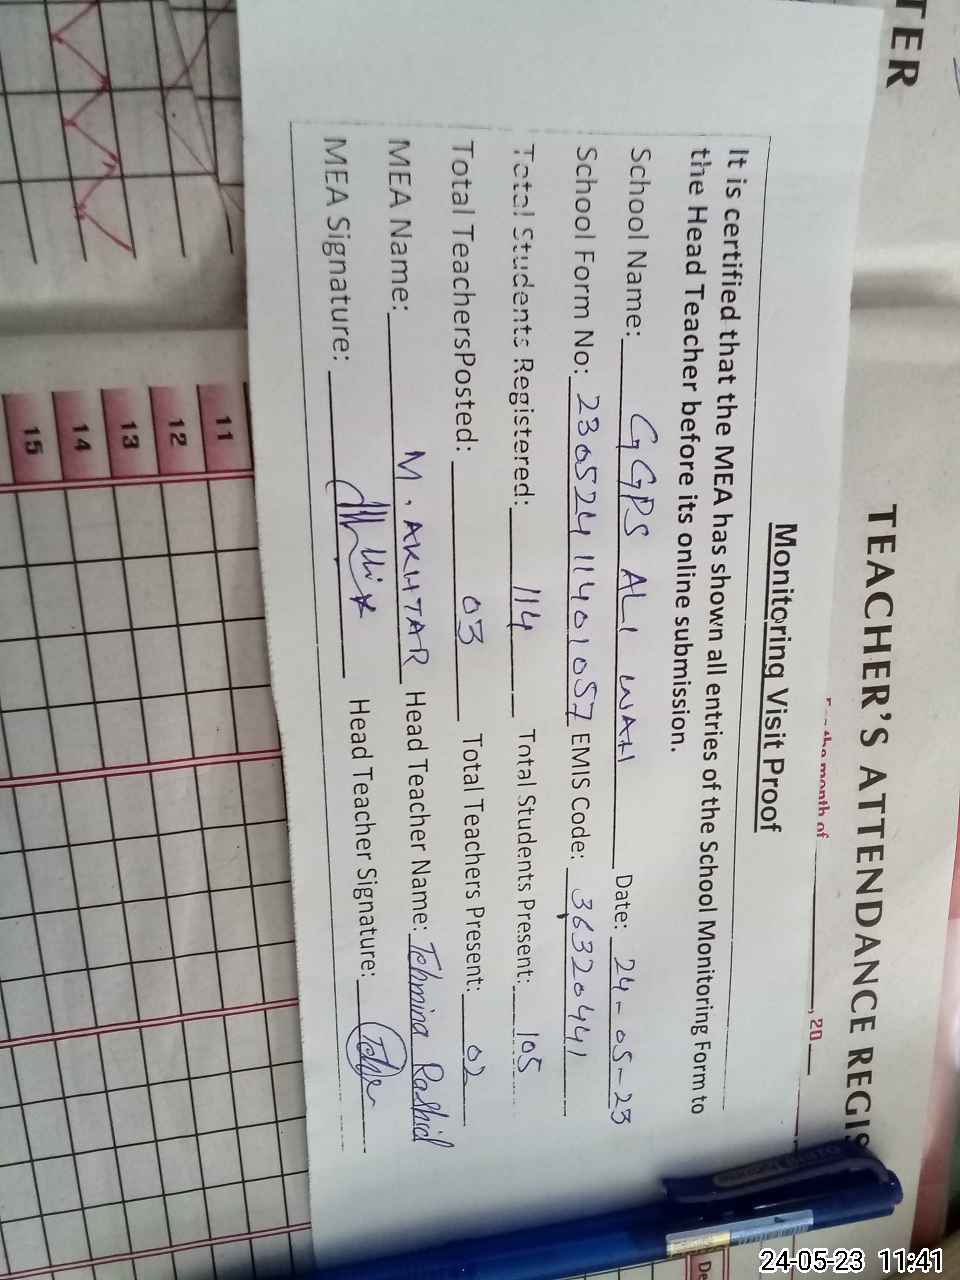 TER
TEACHER'S ATTENDANCE REGIS
For the month of , 20
Monitoring Visit Proof
It is certified that the MEA has shown all entries of the School Monitoring Form to
the Head Teacher before its online submission.
School Name: GGPS ALI WAH Date: 24-05-23
School Form No: 23052411401057 EMIS Code: 36320441
Total Students Registered: 114 Total Students Present: 105
Total TeachersPosted: 03 Total Teachers Present: 02
MEA Name: M. AKHTAR Head Teacher Name: Tehmina Rashid
MEA Signature: Head Teacher Signature:
11
12
13
14
15
De
24-05-23 11:41